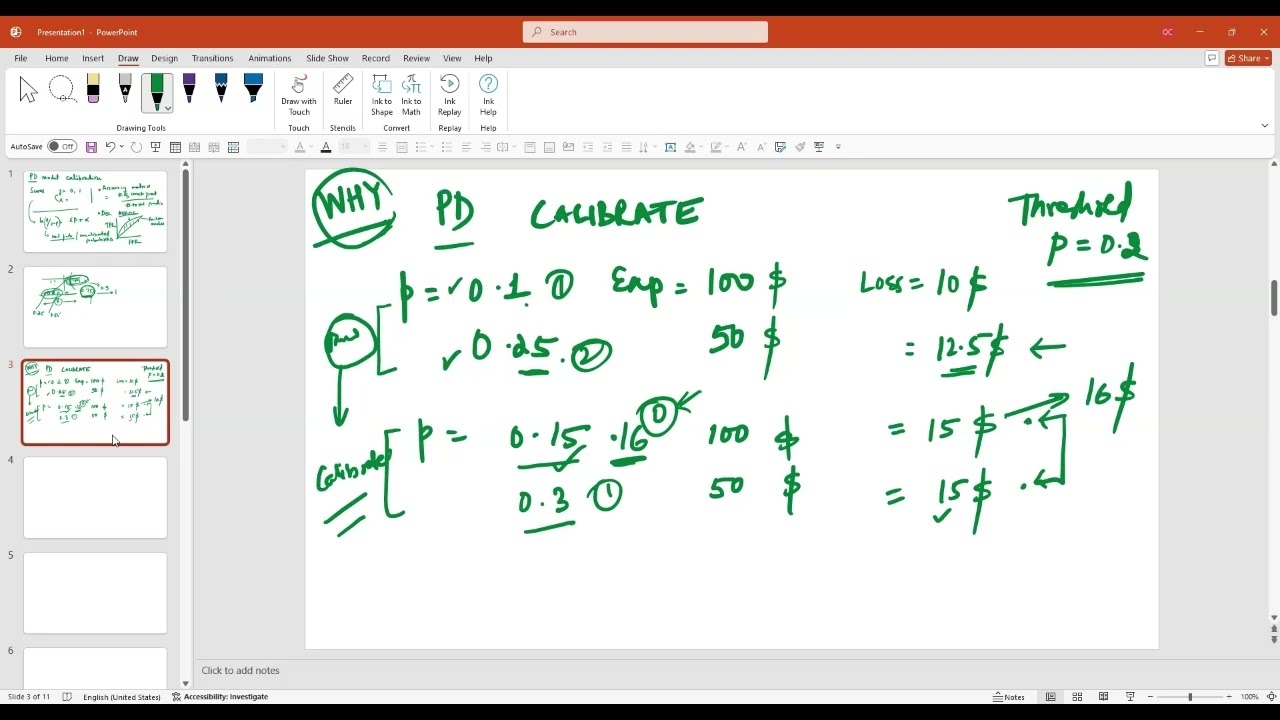 Presentation1 - PowerPoint
Search
OC
File Home Insert Draw Design Transitions Animations Slide Show Record Review View Help
Share
Draw with Touch
Ruler
Ink to Shape
Ink to Math
Ink Replay
Ink Help
Drawing Tools Touch Stencils Convert Replay Help
AutoSave Off
18
1
PD model calibration
2
3
4
5
6
WHY PD CALIBRATE Threshold
P = 0.2
p = ✓ 0.1 ① Exp = 100 $ Loss = 10 $
✓ 0.25 . ② 50 $ = 12.5 $ ←
p = 0.15 .16 100 $ = 15 $ → 16 $
Calibrated
0.3 ① 50 $ = 15 $
Click to add notes
Slide 3 of 11 English (United States) Accessibility: Investigate Notes 100%